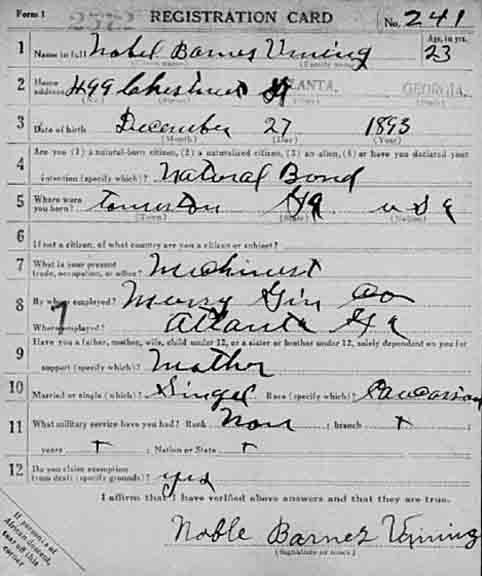 Form 1 2572 REGISTRATION CARD No. 241
1 Name in full Nobel Barnes Vining Age, in yrs. 23
(Given name) (Family name)
2 Home address 499 lakeshut ATLANTA, GEORGIA.
(No.) (Street) (City) (State)
3 Date of birth December 27 1893
(Month) (Day) (Year)
4 Are you (1) a natural-born citizen, (2) a naturalized citizen, (3) an alien, (4) or have you declared your
intention (specify which)? Natural Bond
5 Where were you born? Ga U S a
(Town) (State) (Nation)
6 If not a citizen, of what country are you a citizen or subject?
7 What is your present trade, occupation, or office? Mechinest
8 By whom employed? Gin Co
Where employed? Atlanta Ga
9 Have you a father, mother, wife, child under 12, or a sister or brother under 12, solely dependent on you for
support (specify which)? Mother
10 Married or single (which)? Singel Race (specify which)? Caucasian
11 What military service have you had? Rank Non ; branch +
years + ; Nation or State +
12 Do you claim exemption from draft (specify grounds)? yes
I affirm that I have verified above answers and that they are true.
Noble Barnes Vining
(Signature or mark)
If person is of
African descent,
tear off this
corner